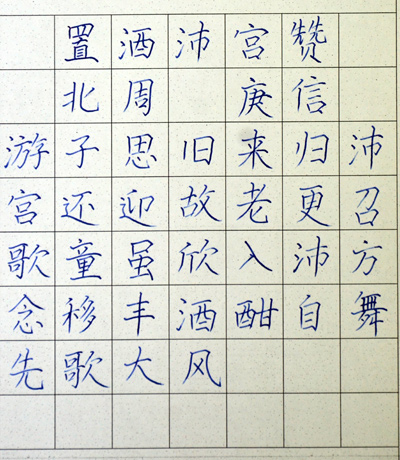 置酒沛宫赞
北周 庚信
游子思旧来归沛
宫还迎故老更召
歌童虽欣入沛方
念移丰酒酣自舞
先歌大风